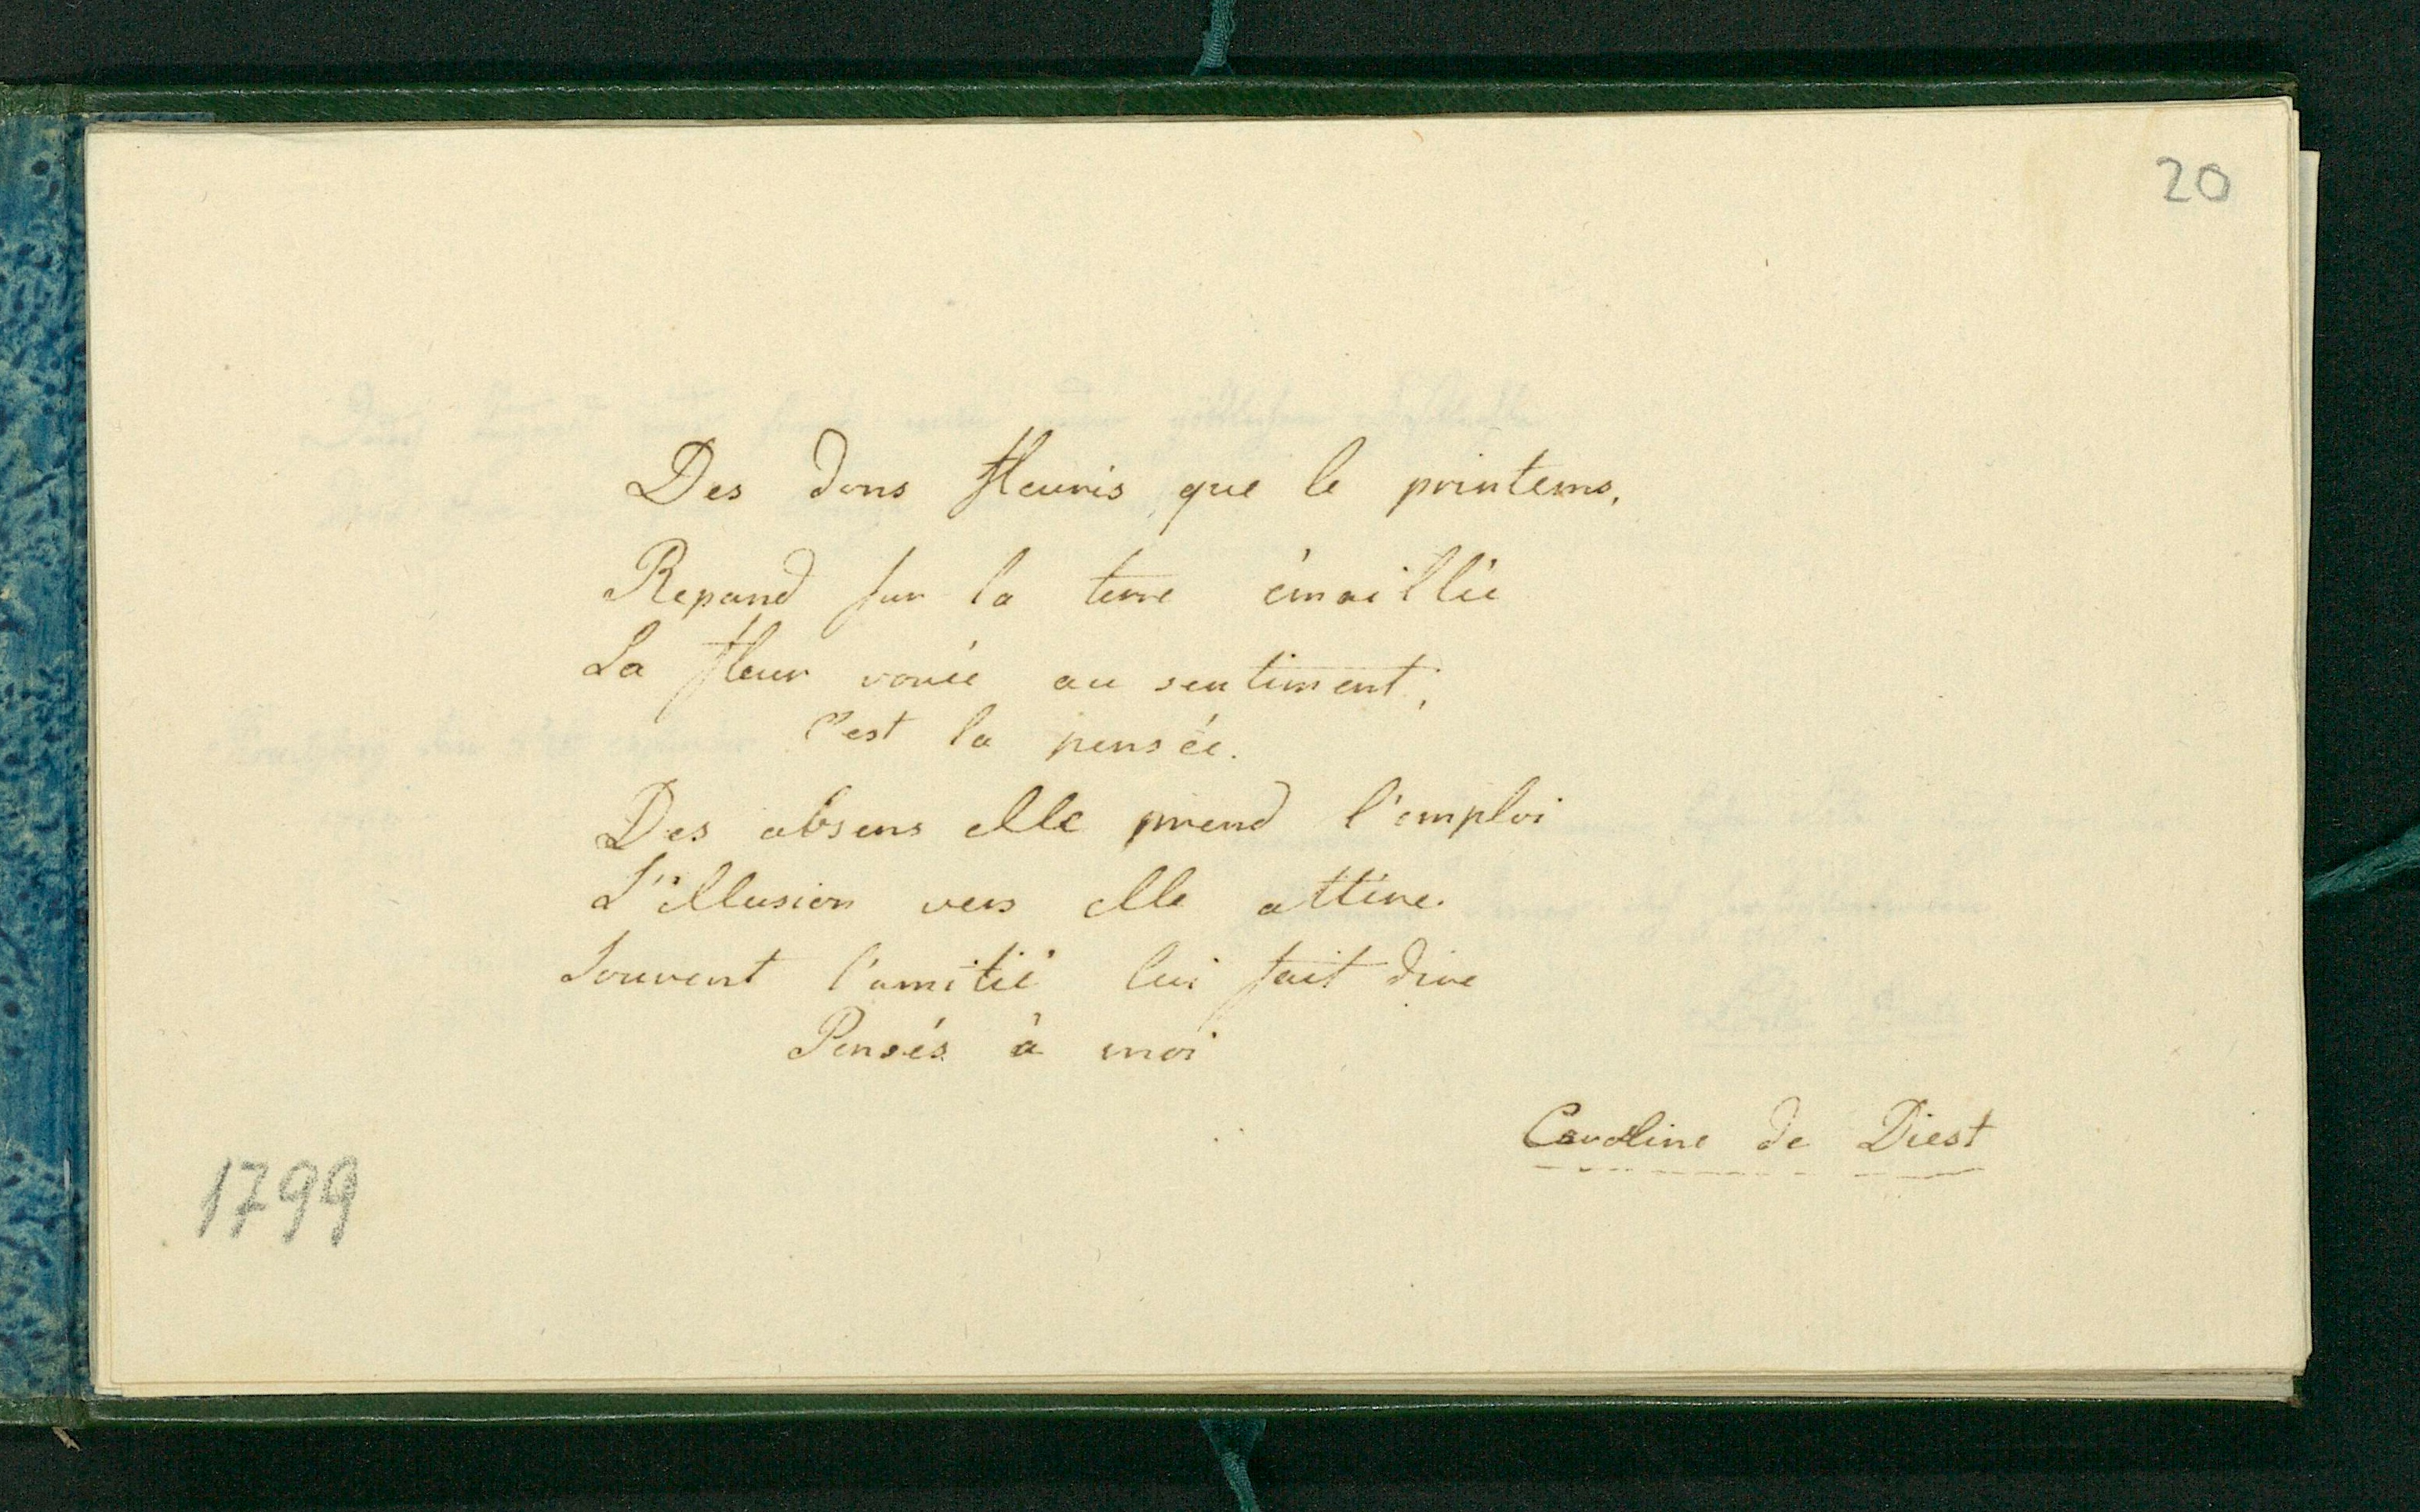 20
Des dons fleuris que le printems,
Repand sur la terre émaillée
La fleur vouée au sentiment,
C'est la pensée.
Des absens elle prend l'emploi
L'illusion vers elle attire.
Souvent l'amitié lui fait dire
Pensés à moi
Caroline de Diest
1799